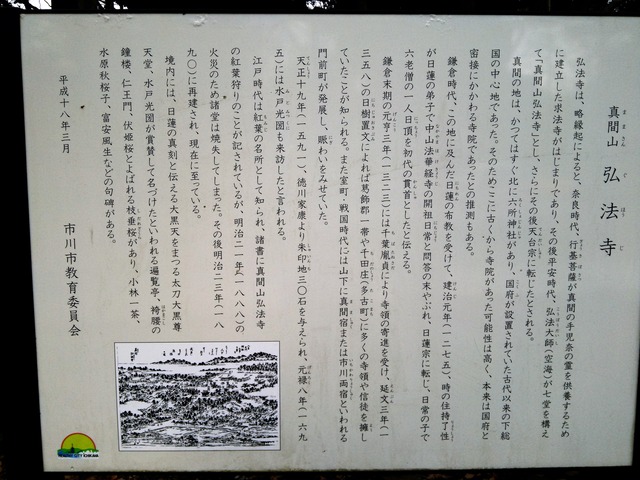 真間山 弘法寺
弘法寺は、略縁起によると、奈良時代、行基菩薩が真間の手児奈の霊を供養するため
に建立した求法寺がはじまりであり、その後平安時代、弘法大師（空海）が七堂を構え
て「真間山弘法寺」とし、さらにその後天台宗に転じたとされる。
真間の地は、かつてはすぐ北に六所神社があり、国府が設置されていた古代以来の下総
国の中心地であった。そのためここに古くから寺院があった可能性は高く、本来は国府と
密接にかかわる寺院であったとの推測もある。
鎌倉時代、この地に及んだ日蓮の布教を受けて、建治元年（一二七五）、時の住持了性
が日蓮の弟子で中山法華経寺の開祖日常と問答の末やぶれ、日蓮宗に転じ、日常の子で
六老僧の一人日頂を初代の貫首としたと伝える。
鎌倉末期の元亨三年（一三二三）には千葉胤貞により寺領の寄進を受け、延文三年（一
三五八）の日樹置文によれば葛飾郡一帯や千田庄（多古町）に多くの寺領や信徒を擁し
ていたことが知られる。また室町・戦国時代には山下に真間宿または市川両宿といわれる
門前町が発展し、賑わいをみせていた。
天正十九年（一五九一）、徳川家康より朱印地三〇石を与えられ、元禄八年（一六九
五）には水戸光圀も来訪したと言われる。
江戸時代は紅葉の名所として知られ、諸書に真間山弘法寺
の紅葉狩りのことが記されているが、明治二一年（一八八八）の
火災のため諸堂は焼失してしまった。その後明治二三年（一八
九〇）に再建され、現在に至っている。
境内には、日蓮の真刻と伝える大黒天をまつる太刀大黒尊
天堂、水戸光圀が賞賛して名づけたといわれる遍覧亭、袴腰の
鐘楼、仁王門、伏姫桜とよばれる枝垂桜があり、小林一茶、
水原秋桜子、富安風生などの句碑がある。
平成十八年三月
市川市教育委員会